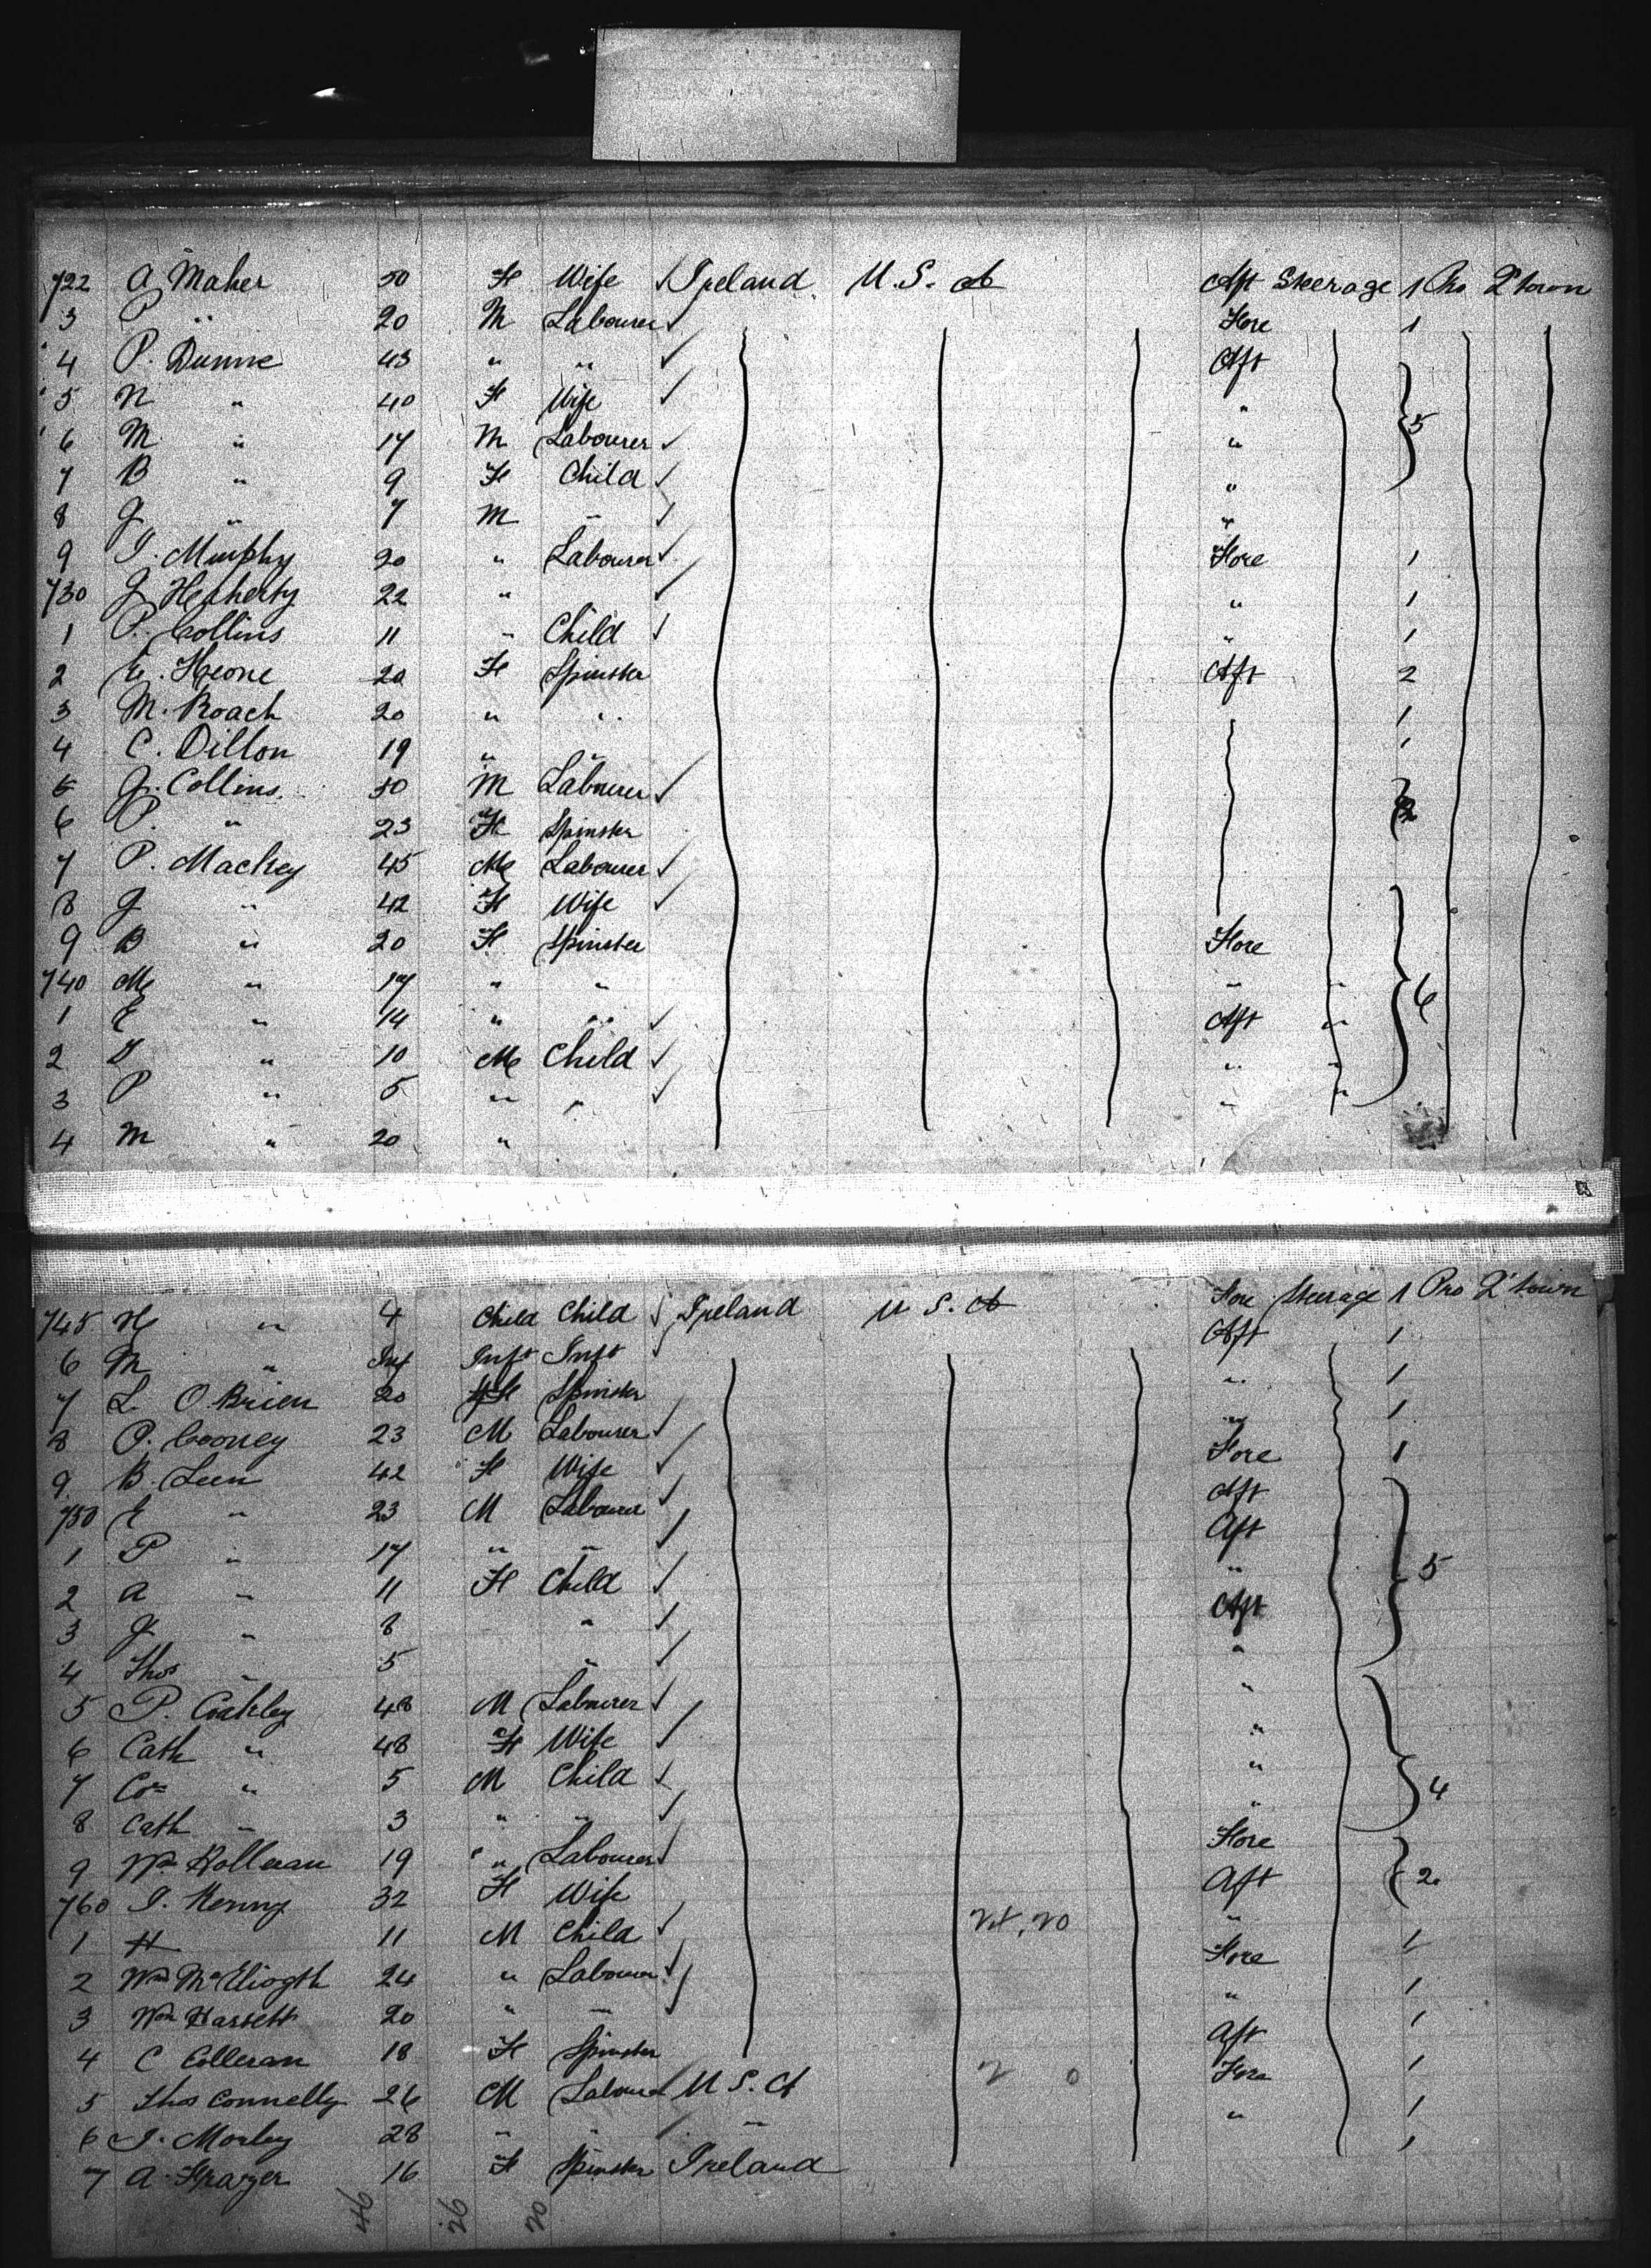 722 A Maher 50 F Wife ✓ Ireland U.S.A Aft Steerage 1 Pro Q'town
3 P " 20 M Labourer ✓ Fore 1
4 P. Dunne 43 " " ✓ Aft
5 N " 40 F Wife ✓ " 5
6 M " 17 M Labourer ✓ "
7 B " 9 F Child ✓ "
8 J " 7 M " ✓ "
9 J. Murphy 20 " Labourer ✓ Fore 1
730 J 22 " ✓ " 1
1 P. Collins 11 " Child ✓ " 1
2 20 F Spinster Aft 2
3 M. Roach 20 " " 1
4 C. Dillon 19 " " 1
5 J. Collins 50 M Labourer ✓ 2
6 P. " 23 F Spinster
7 P. Mackey 45 M Labourer ✓
8 J " 42 F Wife ✓
9 B " 20 F Spinster Fore
740 M " 17 " " " " 6
1 E " 14 " " ✓ Aft "
2 " 10 M Child ✓ " "
3 P " 5 " " ✓ " "
4 M " 20 "
745 H " 4 Child Child ✓ Ireland U S. A Fore Steerage 1 Pro Q'town
6 M " Inf Inft Inft ✓ Aft 1
7 L. O.Brien 20 F Spinster " 1
8 P. Cooney 23 M Labourer ✓ " 1
9. B. Leen 42 F Wife ✓ Fore 1
750 E " 23 M Labourer ✓ Aft
1 P " 17 " " ✓ Aft
2 A " 11 F Child ✓ " 5
3 J " 8 " ✓ Aft
4 Thos " 5 " ✓ "
5 P. Coakley 48 M Labourer ✓ "
6 Cath " 48 F Wife ✓ "
7 Cor " 5 M Child ✓ " 4
8 Cath " 3 " " ✓ "
9 Wm Holleran 19 " Labourer ✓ Fore
760 J. Kenny 32 F Wife Aft 2
1 H 11 M Child ✓ "
2 Wm 24 " Labourer ✓ Fore 1
3 Wm Hassett 20 " " ✓ " 1
4 C Colleran 18 F Spinster Aft 1
5 Thos Connelly 26 M Labourer U S. A Fore 1
6 J. Morley 28 " " " " 1
7 A. 16 F Spinster Ireland 1
46 26 20